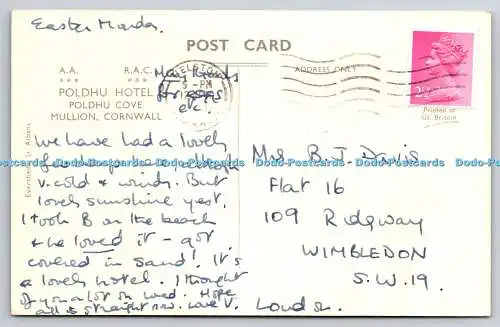 Easter Monday.
POST CARD
A.A. R.A.C.
*** ***
POLDHU HOTEL
POLDHU COVE
MULLION, CORNWALL
HELSTON
5 - PM
ADDRESS ONLY
Many thanks
for
etc.
2½
Printed in
Gt. Britain
St. Albans
We have had a lovely
v. cold & windy. But
lovely sunshine yest.
I took B on the beach
& he loved it - got
covered in sand! It's
a lovely hotel. I thought
of you a lot on Wed. Hope
all is straight now. Love V.
Mrs B. J. Davis
Flat 16
109 Ridgway
WIMBLEDON
S.W.19.
London.
Dodo-Postcards Dodo-Postcards Dodo-Postcards Dodo-Postcards Dodo-Postcards